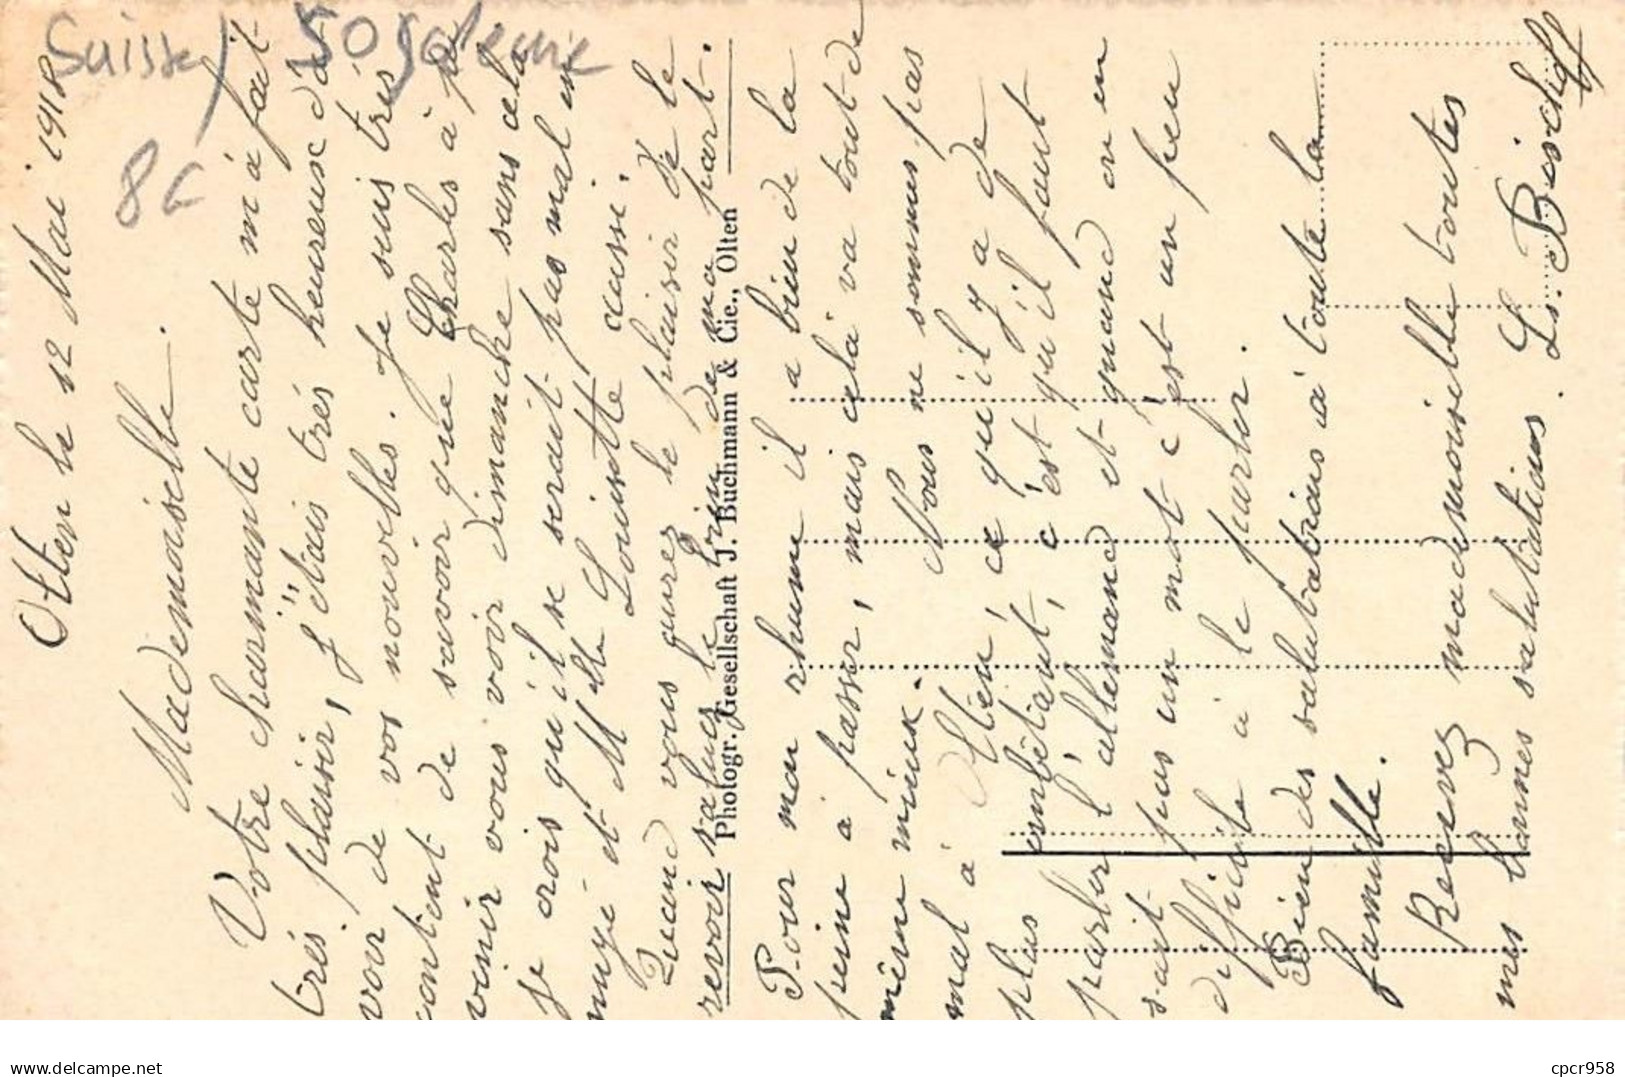 Suisse / Sogoleurie
8€
Olten le 12 Mai 1918
Mademoiselle.
Votre charmante carte m'à fait
très plaisir, j'étais très heureuse d'a-
voir de vos nouvelles. Je suis très
content de savoir que Charles à pu
venir vous voir dimanche sans cela
je crois qu'il se serait pas mal en
nuyé et Mlle Louisette aussi.
Quand vous aurez le plaisir de le
revoir saluez le bien de ma part.
Photogr. Gesellschaft J. Buchmann & Cie., Olten
Pour mon rhume il a bien de la
peine à passer, mais celà va tout de
même mieux. Nous ne sommes pas
mal à Olten, ce qu'il y a de
plus embêtant, c'est qu'il faut
parler l'allemand et quand on en
sait pas un mot c'est un peu
difficile à le parler.
Bien des salutations à toute la
famille.
Recevez mademoiselle toutes
mes bonnes salutations. Ls. Bischoff
cpcr958
www.delcampe.net